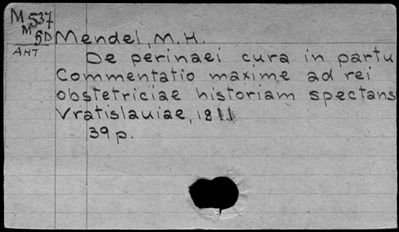 M537
M5D
Mendel, M.H.
AHT
De perinaei cura in partu
Commentatio maxime ad rei
obstetriciae historiam spectans
Vratislauiae, 1811
39p.